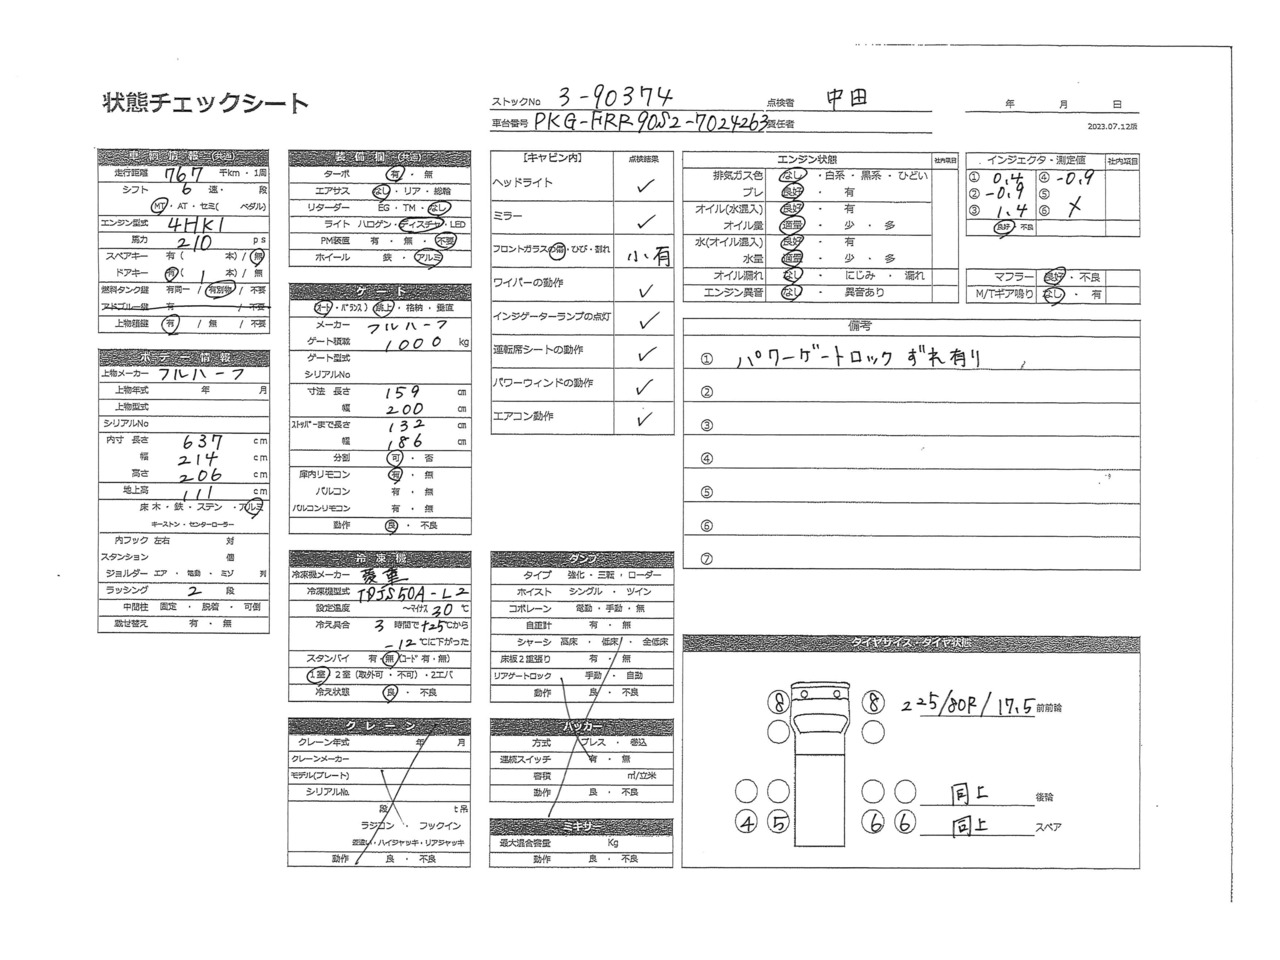 状態チェックシート
ストックNo 3-90374 点検者 中田
車台番号 PKG-FRR90S2-7024263 責任者
年 月 日
2023.07.12版
車輌情報(共通)
走行距離 767 千km・1周
シフト 6 速・ 段
MT・AT・セミ( ペダル)
エンジン型式 4HK1
馬力 210 ps
スペアキー 有( 本)/無
ドアキー 有( 1 本)/無
燃料タンク鍵 有同一/有別物/不要
アドブルー鍵 有 /不要
上物鍵鍵 有 / 無 /不要
ボデー情報
上物メーカー フルハーフ
上物年式 年 月
上物型式
シリアルNo
内寸 長さ 637 cm
幅 214 cm
高さ 206 cm
地上高 111 cm
床 木・鉄・ステン・アルミ
キーストン・センターローラー
内フック 左右 対
スタンション 個
ジョルダー エア・電動・ミゾ 列
ラッシング 2 段
中間柱 固定・脱着・可倒
載せ替え 有・無
装備欄(共通)
ターボ 有・無
エアサス なし・リア・総輪
リターダー EG・TM・なし
ライト ハロゲン・ディスチャ・LED
PM装置 有・無・不要
ホイール 鉄・アルミ
ゲート
(オート・バランス) 跳上・格納・垂直
メーカー フルハーフ
ゲート積載 1000 kg
ゲート型式
シリアルNo
寸法 長さ 159 cm
幅 200 cm
ストッパーまで長さ 132 cm
幅 186 cm
分割 可・否
庫内リモコン 有・無
バルコン 有・無
バルコンリモコン 有・無
動作 良・不良
冷凍機
冷凍機メーカー 菱重
冷凍機型式 TDJS50A-L2
設定温度 ～マイナス 30 ℃
冷え具合 3 時間で +25℃から
-12 ℃に下がった
スタンバイ 有・無(コード 有・無)
1室・2室(取外可・不可)・2エバ
冷え状態 良・不良
クレーン
クレーン年式 年 月
クレーンメーカー
モデル(プレート)
シリアルNo.
段 t吊
ラジコン・フックイン
差違い・ハイジャッキ・リアジャッキ
動作 良・不良
【キャビン内】 点検結果
ヘッドライト ✓
ミラー ✓
フロントガラスの傷・ひび・割れ 小有
ワイパーの動作 ✓
インジゲーターランプの点灯 ✓
運転席シートの動作 ✓
パワーウィンドの動作 ✓
エアコン動作 ✓
ダンプ
タイプ 強化・三転・ローダー
ホイスト シングル・ツイン
コボレーン 電動・手動・無
自重計 有・無
シャーシ 高床・低床・全低床
床板2重張り 有・無
リアゲートロック 手動・自動
動作 良・不良
パッカー
方式 プレス・巻込
連続スイッチ 有・無
容積 ㎥/立米
動作 良・不良
ミキサー
最大混合容量 Kg
動作 良・不良
エンジン状態 社内項目
排気ガス色 なし・白系・黒系・ひどい
ブレ 良好・有
オイル(水混入) 良好・有
オイル量 適量・少・多
水(オイル混入) 良好・有
水量 適量・少・多
オイル漏れ なし・にじみ・漏れ
エンジン異音 なし・異音あり
インジェクタ・測定値 社内項目
① 0.4 ④ -0.9
② -0.9 ⑤
③ 1.4 ⑥ ✗
良好・不良
マフラー 良好・不良
M/Tギア鳴り なし・有
備考
① パワーゲートロック ずれ有り
②
③
④
⑤
⑥
⑦
タイヤサイズ・タイヤ状態
8 8 225/80R/17.5 前前輪
同上 後輪
4 5 6 6 同上 スペア